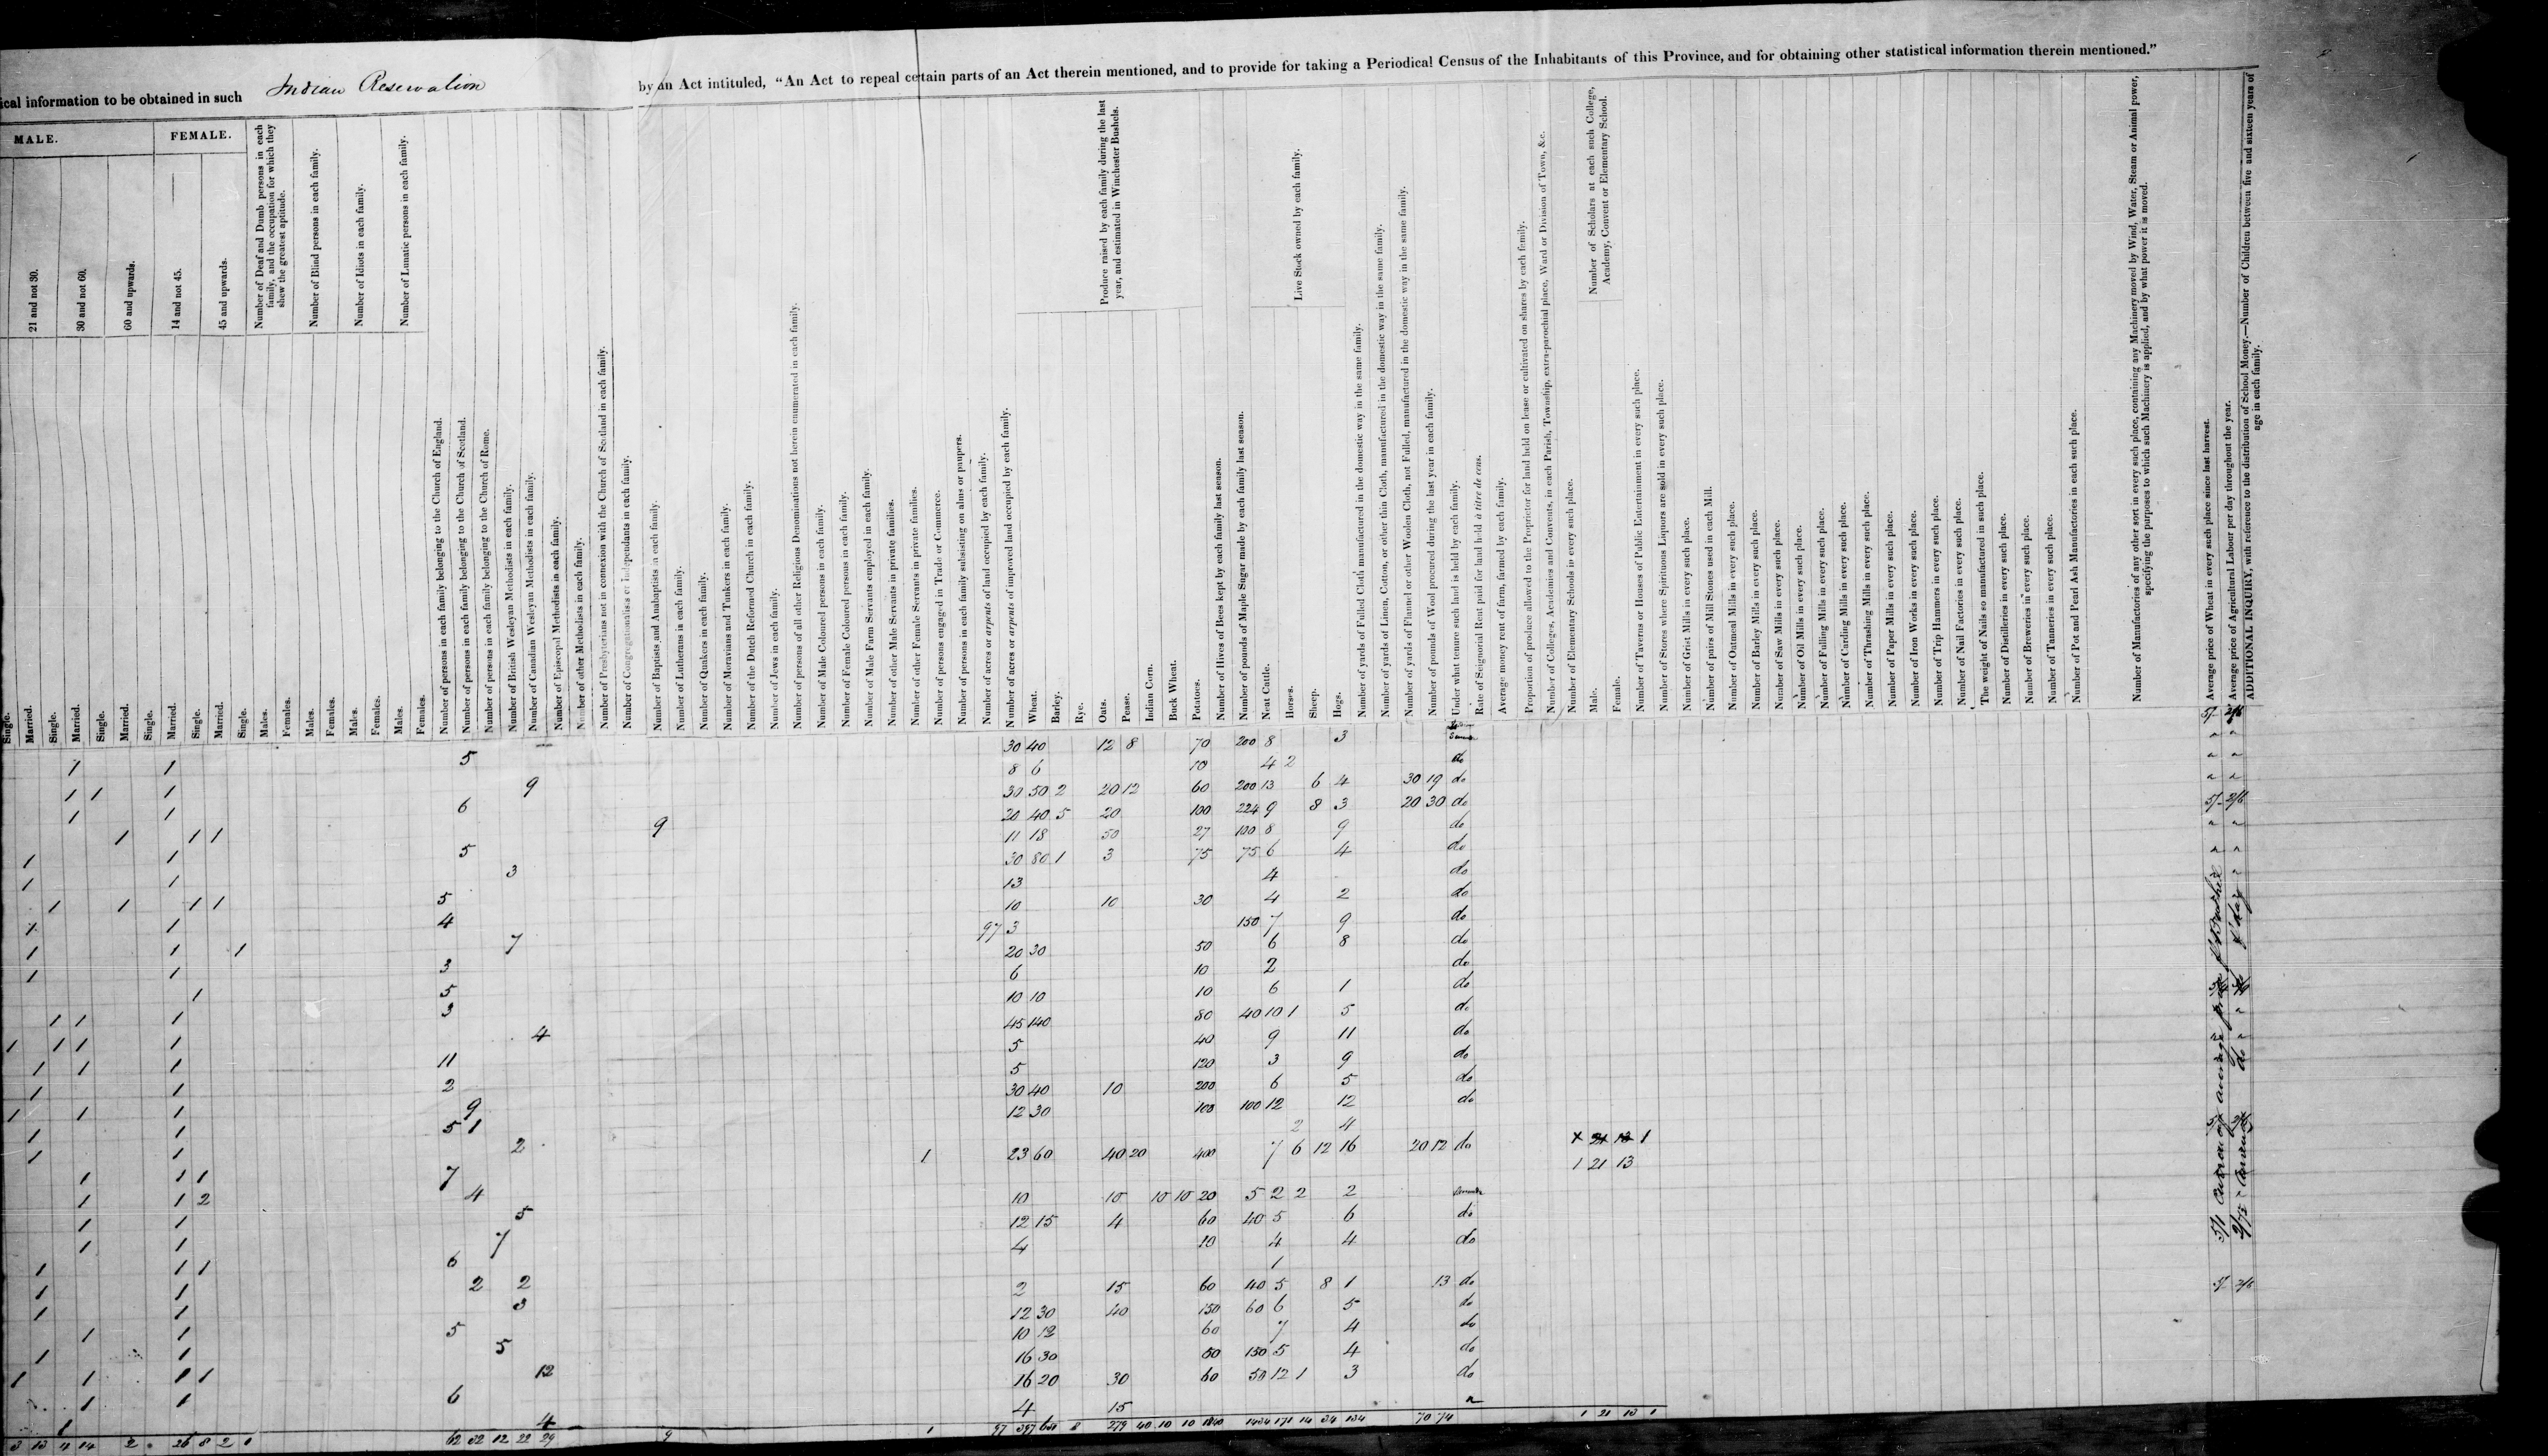 ical information to be obtained in such Indian Reservation by an Act intituled, "An Act to repeal certain parts of an Act therein mentioned, and to provide for taking a Periodical Census of the Inhabitants of this Province, and for obtaining other statistical information therein mentioned."
MALE.
FEMALE.
21 and not 30.
30 and not 60.
60 and upwards.
14 and not 45.
45 and upwards.
Single.
Married.
Single.
Married.
Single.
Married.
Single.
Married.
Single.
Married.
Single.
Number of Deaf and Dumb persons in each family, and the occupation for which they shew the greatest aptitude.
Males.
Females.
Number of Blind persons in each family.
Males.
Females.
Number of Idiots in each family.
Males.
Females.
Number of Lunatic persons in each family.
Males.
Females.
Number of persons in each family belonging to the Church of England.
Number of persons in each family belonging to the Church of Scotland.
Number of persons in each family belonging to the Church of Rome.
Number of British Wesleyan Methodists in each family.
Number of Canadian Wesleyan Methodists in each family.
Number of Episcopal Methodists in each family.
Number of other Methodists in each family.
Number of Presbyterians not in connexion with the Church of Scotland in each family.
Number of Congregationalists or Independants in each family.
Number of Baptists and Anabaptists in each family.
Number of Lutherans in each family.
Number of Quakers in each family.
Number of Moravians and Tunkers in each family.
Number of the Dutch Reformed Church in each family.
Number of Jews in each family.
Number of persons of all other Religious Denominations not herein enumerated in each family.
Number of Male Coloured persons in each family.
Number of Female Coloured persons in each family.
Number of Male Farm Servants employed in each family.
Number of other Male Servants in private families.
Number of other Female Servants in private families.
Number of persons engaged in Trade or Commerce.
Number of persons in each family subsisting on alms or paupers.
Number of acres or arpents of land occupied by each family.
Number of acres or arpents of improved land occupied by each family.
Produce raised by each family during the last year, and estimated in Winchester Bushels.
Wheat.
Barley.
Rye.
Oats.
Pease.
Indian Corn.
Buck Wheat.
Potatoes.
Number of Hives of Bees kept by each family last season.
Number of pounds of Maple Sugar made by each family last season.
Live Stock owned by each family.
Neat Cattle.
Horses.
Sheep.
Hogs.
Number of yards of Fulled Cloth manufactured in the domestic way in the same family.
Number of yards of Linen, Cotton, or other thin Cloth, manufactured in the domestic way in the same family.
Number of yards of Flannel or other Woolen Cloth, not Fulled, manufactured in the domestic way in the same family.
Number of pounds of Wool procured during the last year in each family.
Under what tenure such land is held by each family.
Rate of Seignorial Rent paid for land held à titre de cens.
Average money rent of farm, farmed by each family.
Proportion of produce allowed to the Proprietor for land held on lease or cultivated on shares by each family.
Number of Colleges, Academies and Convents, in each Parish, Township, extra-parochial place, Ward or Division of Town, &c.
Number of Elementary Schools in every such place.
Number of Scholars at each such College, Academy, Convent or Elementary School.
Male.
Female.
Number of Taverns or Houses of Public Entertainment in every such place.
Number of Stores where Spirituous Liquors are sold in every such place.
Number of Grist Mills in every such place.
Number of pairs of Mill Stones used in each Mill.
Number of Oatmeal Mills in every such place.
Number of Barley Mills in every such place.
Number of Saw Mills in every such place.
Number of Oil Mills in every such place.
Number of Fulling Mills in every such place.
Number of Carding Mills in every such place.
Number of Thrashing Mills in every such place.
Number of Paper Mills in every such place.
Number of Iron Works in every such place.
Number of Trip Hammers in every such place.
Number of Nail Factories in every such place.
The weight of Nails so manufactured in such place.
Number of Distilleries in every such place.
Number of Breweries in every such place.
Number of Tanneries in every such place.
Number of Pot and Pearl Ash Manufactories in each such place.
Number of Manufactories of any other sort in every such place, containing any Machinery moved by Wind, Water, Steam or Animal power, specifying the purposes to which such Machinery is applied, and by what power it is moved.
Average price of Wheat in every such place since last harvest.
Average price of Agricultural Labour per day throughout the year.
ADDITIONAL INQUIRY, with reference to the distribution of School Money.—Number of Children between five and sixteen years of age in each family.
5 30 40 12 8 70 200 8 3
1 1 8 6 10 4 2 do
1 1 1 9 30 50 2 20 12 60 200 13 6 4 30 19 do
1 1 6 20 40 5 20 100 224 9 8 3 20 30 do 5/- 2/6
1 1 1 9 11 18 50 27 100 8 9 do
1 1 5 30 80 1 3 75 75 6 4 do
1 1 3 13 4 do
1 1 1 1 5 10 10 30 4 2 do
1 1 4 97 3 150 7 9 do
1 1 1 7 20 30 50 6 8 do
1 1 3 6 10 2 do
1 5 10 10 10 6 1 do
1 1 1 3 45 140 80 40 10 1 5 do
1 1 1 1 4 5 40 9 11 do
1 1 1 11 5 120 3 9 do
1 1 2 30 40 10 200 6 5 do
1 1 1 9 12 30 100 100 12 12 do
1 1 5 1 2 4
1 1 2 1 23 60 40 20 400 7 6 12 16 20 12 do 1
1 21 13
1 1 1 7
1 1 2 4 10 10 10 10 20 5 2 2 2
1 1 5 12 15 4 60 40 5 6 do
1 1 7 4 10 4 4 do
1 1 1 6 1
1 1 2 2 2 15 60 40 5 8 1 13 do 5/- 2/6
1 1 3 12 30 40 150 60 6 5 do
1 1 5 10 12 60 7 4 do
1 1 5 16 30 50 150 5 4 do
1 1 1 1 12 16 20 30 60 50 12 1 3 do
1 1 6 4 15
1 4
3 13 4 14 2 26 8 2 62 32 12 22 29 9 1 97 397 8 279 40 10 10 1434 171 14 34 134 70 74 1 21 13 1